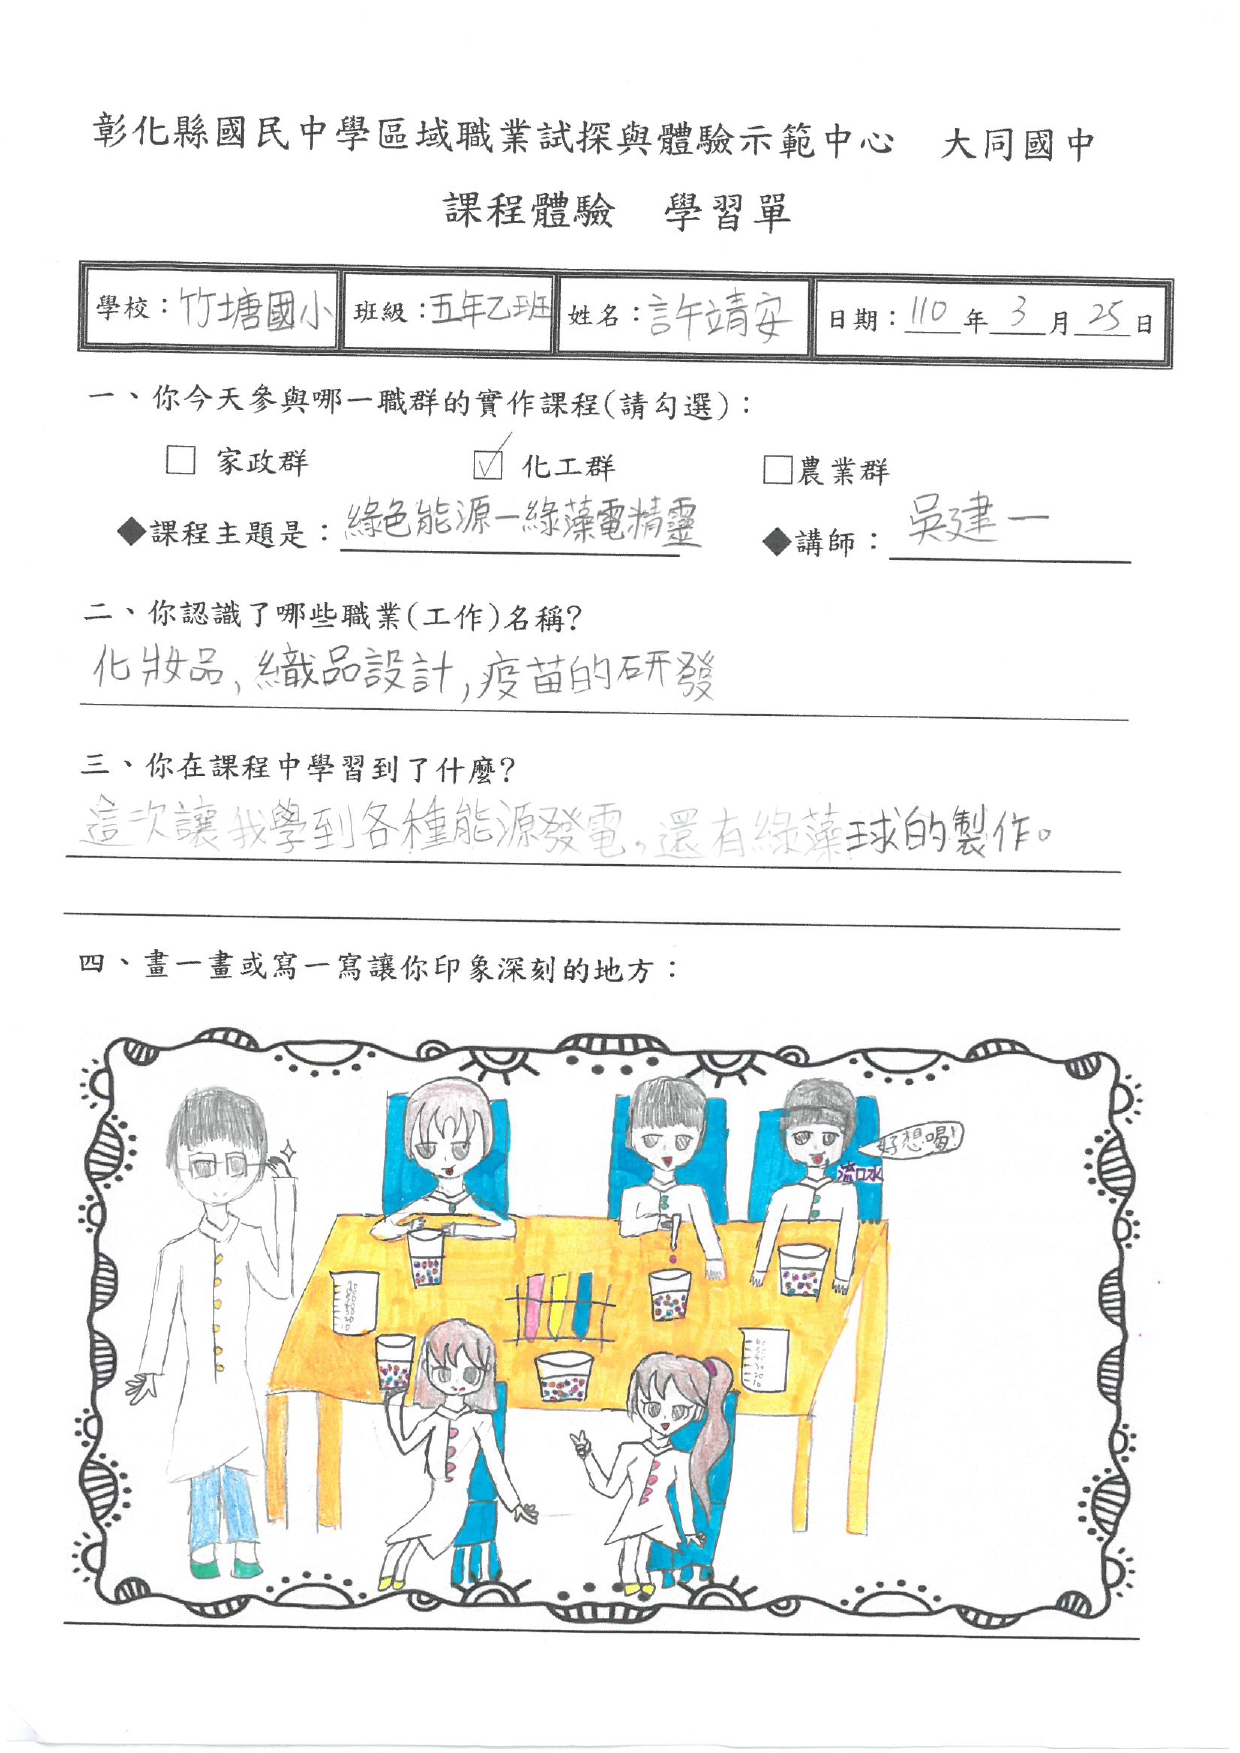 彰化縣國民中學區域職業試探與體驗示範中心 大同國中
課程體驗 學習單
學校：竹塘國小 班級：五年乙班 姓名：許靖安 日期：110年3月25日
一、你今天參與哪一職群的實作課程(請勾選)：
□ 家政群 ☑ 化工群 □農業群
◆課程主題是：綠色能源—綠藻電精靈 ◆講師：吳建一
二、你認識了哪些職業(工作)名稱?
化妝品,織品設計,疫苗的研發
三、你在課程中學習到了什麼?
這次讓我學到各種能源發電。還有綠藻球的製作。
四、畫一畫或寫一寫讓你印象深刻的地方：
好想喝!
流口水
60
50
40
30
20
10